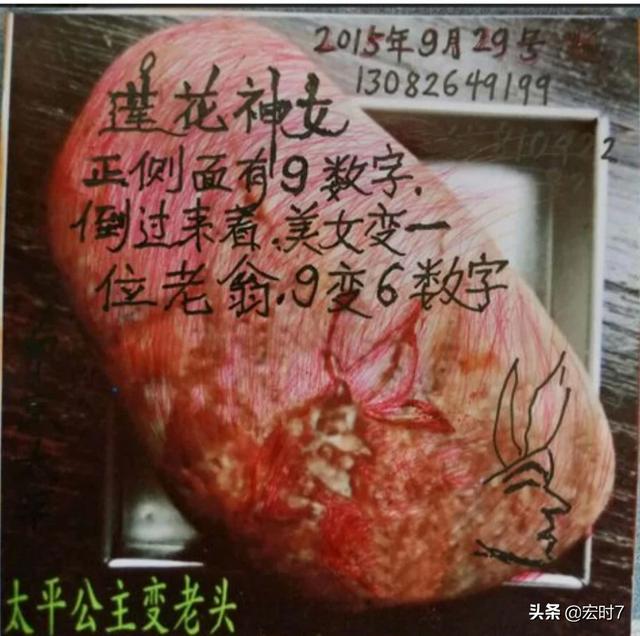 2015年9月29号
13082649199
莲花神女
正侧面有9数字.
倒过来看.美女变一
位老翁.9变6数字
太平公主变老头
头条 @宏时7